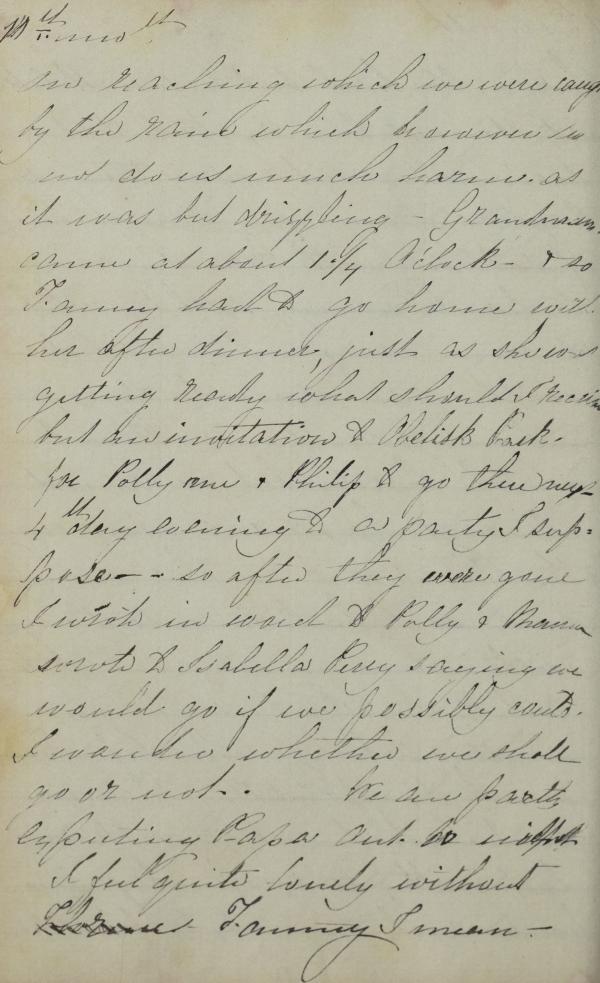 in reaching which we were caugh
by the raine which however
not do us much harm. as
it was but drizzling - Grandmam
came at about 1 1/4 O'clock - & so
Fanny had to go home will
her after dinner, just as she was
getting ready what should I receive
but an invitation to Obelisk Park.
for Polly me & Philip to go there nex
4th day evening to a party I sup=
pose - - so after they were gone
I in word to Polly & Mama
wrote to Isabella Perry saying we
would go if we possibly could.
I wonder whether we shall
go or not. We are partly
expecting Papa out to night
I feel quite lonely without
Florence Fanny I mean -